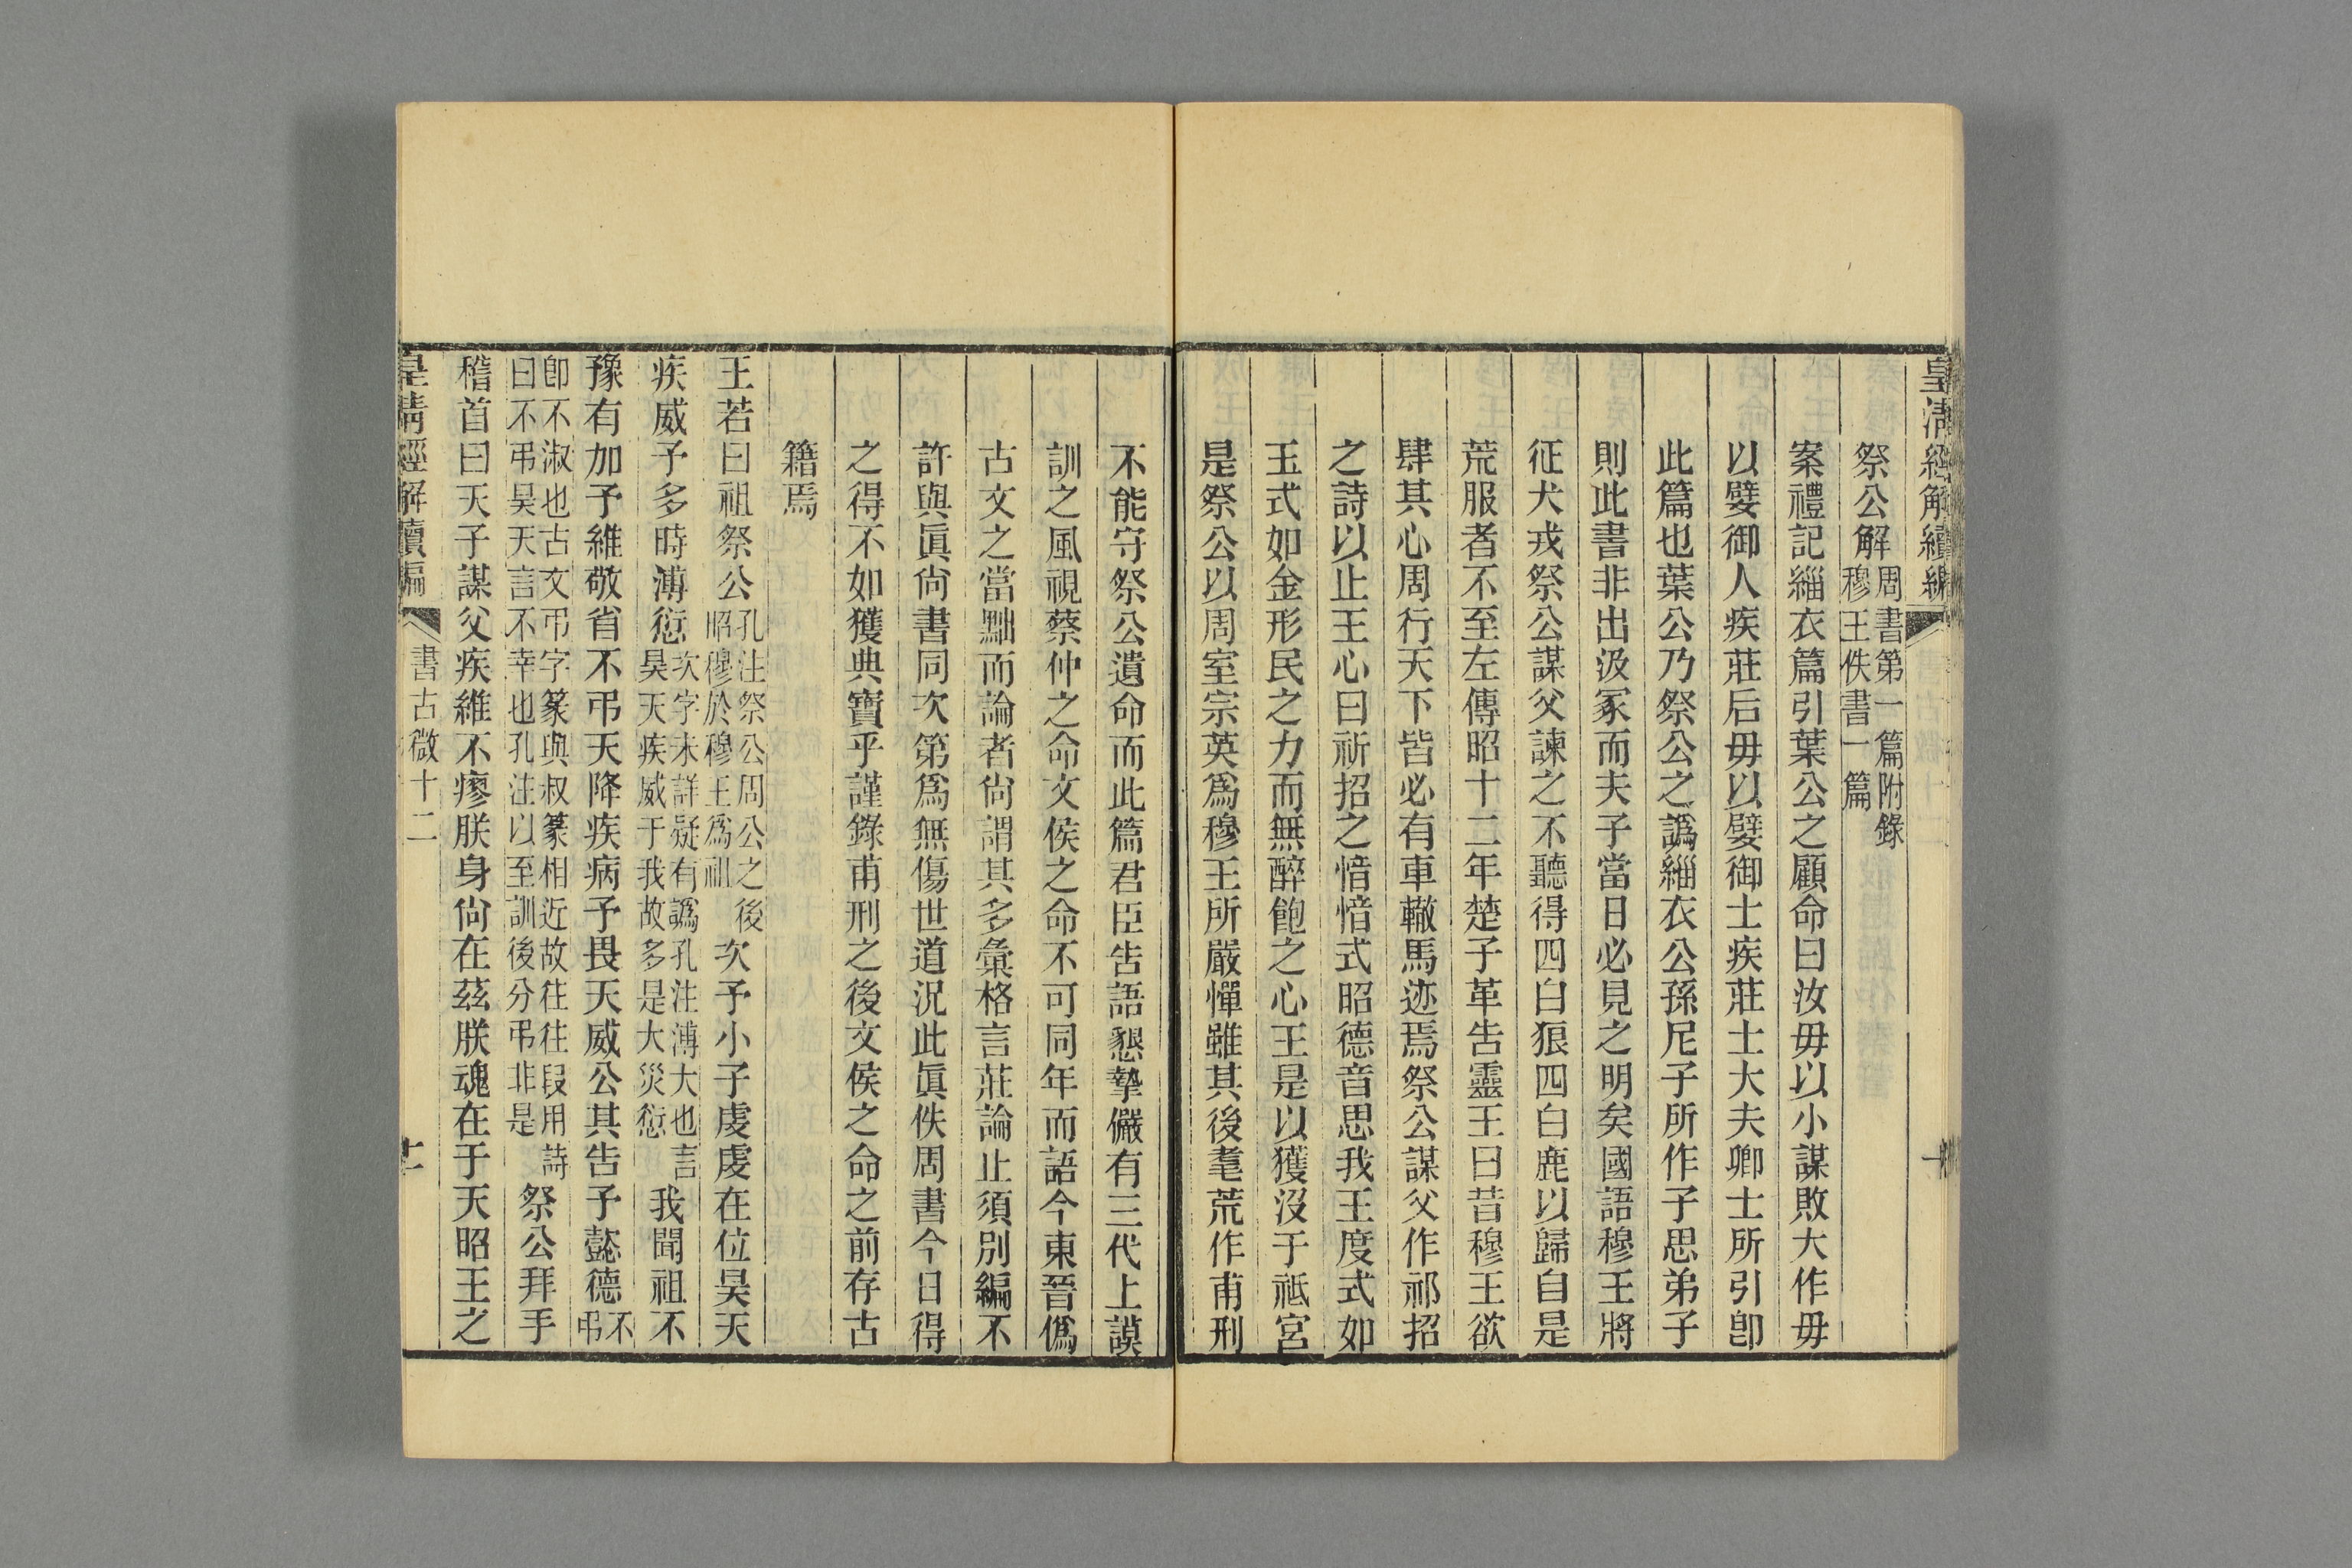 皇清經解續編
祭公解周書第一篇附錄穆王佚書一篇
案禮記緇衣篇引葉公之顧命曰汝毋以小謀敗大作毋
以嬖御人疾莊后毋以嬖御士疾莊士大夫卿士所引卽
此篇也葉公乃祭公之譌緇衣公孫尼子所作子思弟子
則此書非出汲冢而夫子當日必見之明矣國語穆王將
征犬戎祭公謀父諫之不聽得四白狼四白鹿以歸自是
荒服者不至左傳昭十二年楚子革告靈王曰昔穆王欲
肆其心周行天下皆必有車轍馬迹焉祭公謀父作祁招
之詩以止王心曰祈招之愔愔式昭德音思我王度式如
玉式如金形民之力而無醉飽之心王是以獲沒于祗宮
是祭公以周室宗英爲穆王所嚴憚雖其後耄荒作甫刑
不能守祭公遺命而此篇君臣告語懇摯儼有三代上謨
訓之風視蔡仲之命文侯之命不可同年而語今東晉僞
古文之當黜而論者尙謂其多彙格言莊論止須別編不
許與眞尙書同次第爲無傷世道況此眞佚周書今日得
之得不如獲典寶乎謹錄甫刑之後文侯之命之前存古
籍焉
王若曰祖祭公孔注祭公周公之後昭穆於穆王爲祖次予小子虔虔在位昊天
疾威予多時溥愆次字未詳疑有譌孔注溥大也言昊天疾威于我故多是大災愆我聞祖不
豫有加予維敬省不弔天降疾病予畏天威公其告予懿德不弔
卽不淑也古文弔字篆與叔篆相近故往往叚用詩曰不弔昊天言不幸也孔注以至訓後分弔非是祭公拜手
稽首曰天子謀父疾維不瘳朕身尙在茲朕魂在于天昭王之
皇清經解續編
書古微十二